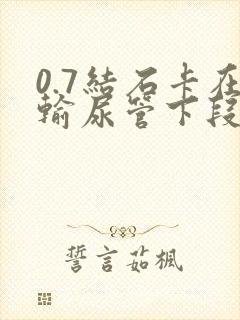 0.7結石卡在
輸尿管下段
誓言茹楓